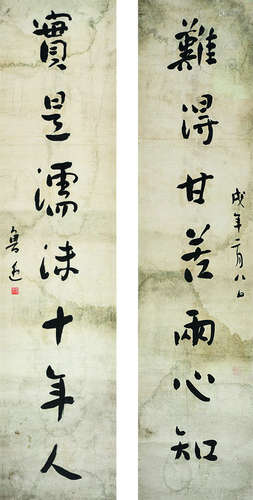 戌年二月八日
難得甘苦兩心知
實是濡沫十年人
魯迅